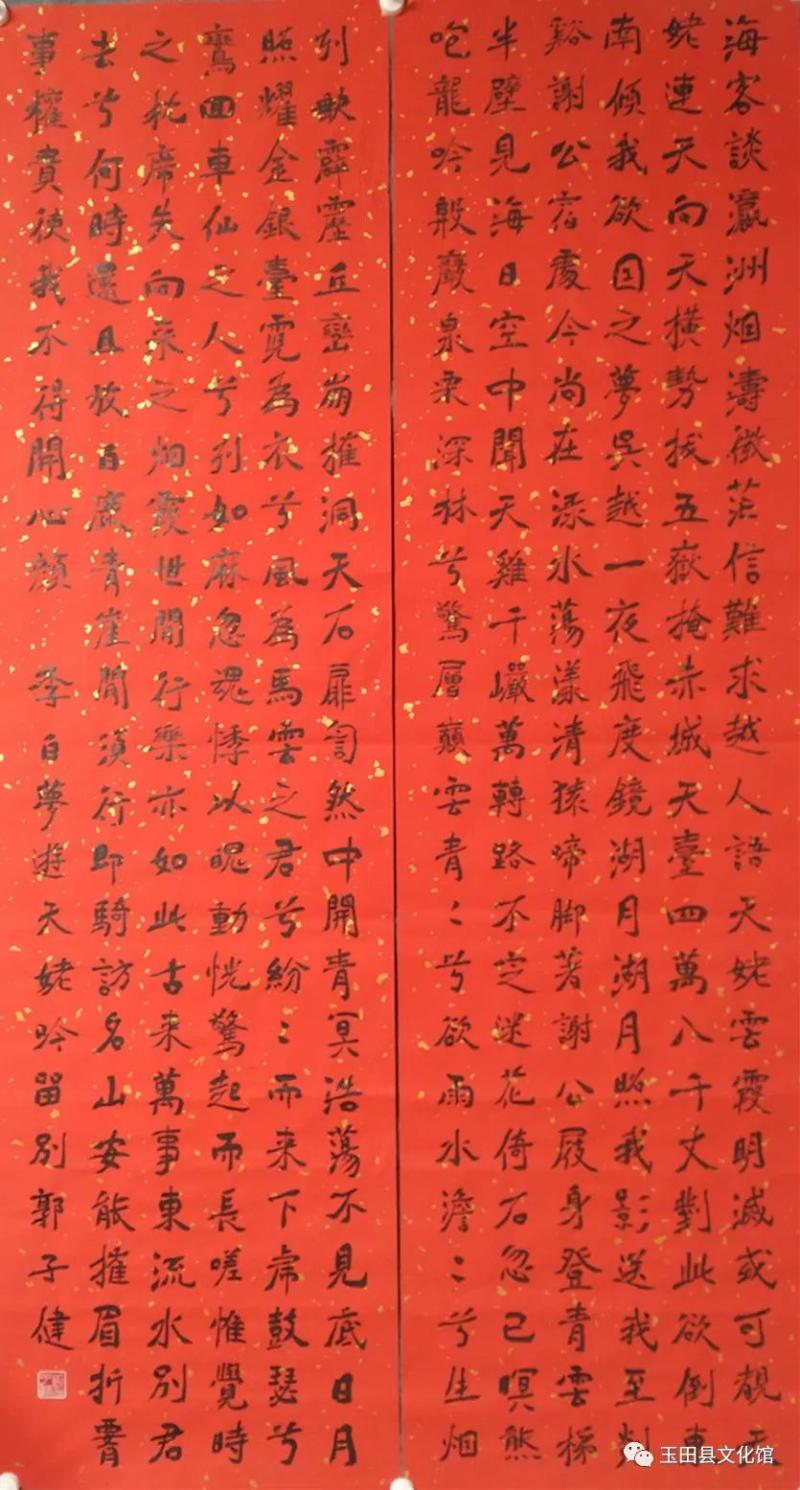 海客談瀛洲烟濤微茫信難求越人語天姥雲霞明滅或可覩天
姥連天向天橫勢拔五嶽掩赤城天臺四萬八千丈對此欲倒東
南傾我欲因之夢吳越一夜飛度鏡湖月湖月照我影送我至剡
谿謝公宿處今尚在淥水蕩漾清猿啼脚著謝公屐身登青雲梯
半壁見海日空中聞天雞千巖萬轉路不定迷花倚石忽已暝熊
咆龍吟殷巖泉栗深林兮驚層巔雲青〻兮欲雨水澹〻兮生烟
列缺霹靂丘巒崩摧洞天石扉訇然中開青冥浩蕩不見底日月
照耀金銀臺霓為衣兮風為馬雲之君兮紛〻而来下虎鼓瑟兮
鸞回車仙之人兮列如麻忽魂悸以魄動恍驚起而長嗟惟覺時
之枕席失向来之烟霞世間行樂亦如此古来萬事東流水別君
去兮何時還且放白鹿青崖間須行即騎訪名山安能摧眉折腰
事權貴使我不得開心顏 李白夢遊天姥吟留別郭子健
玉田县文化馆